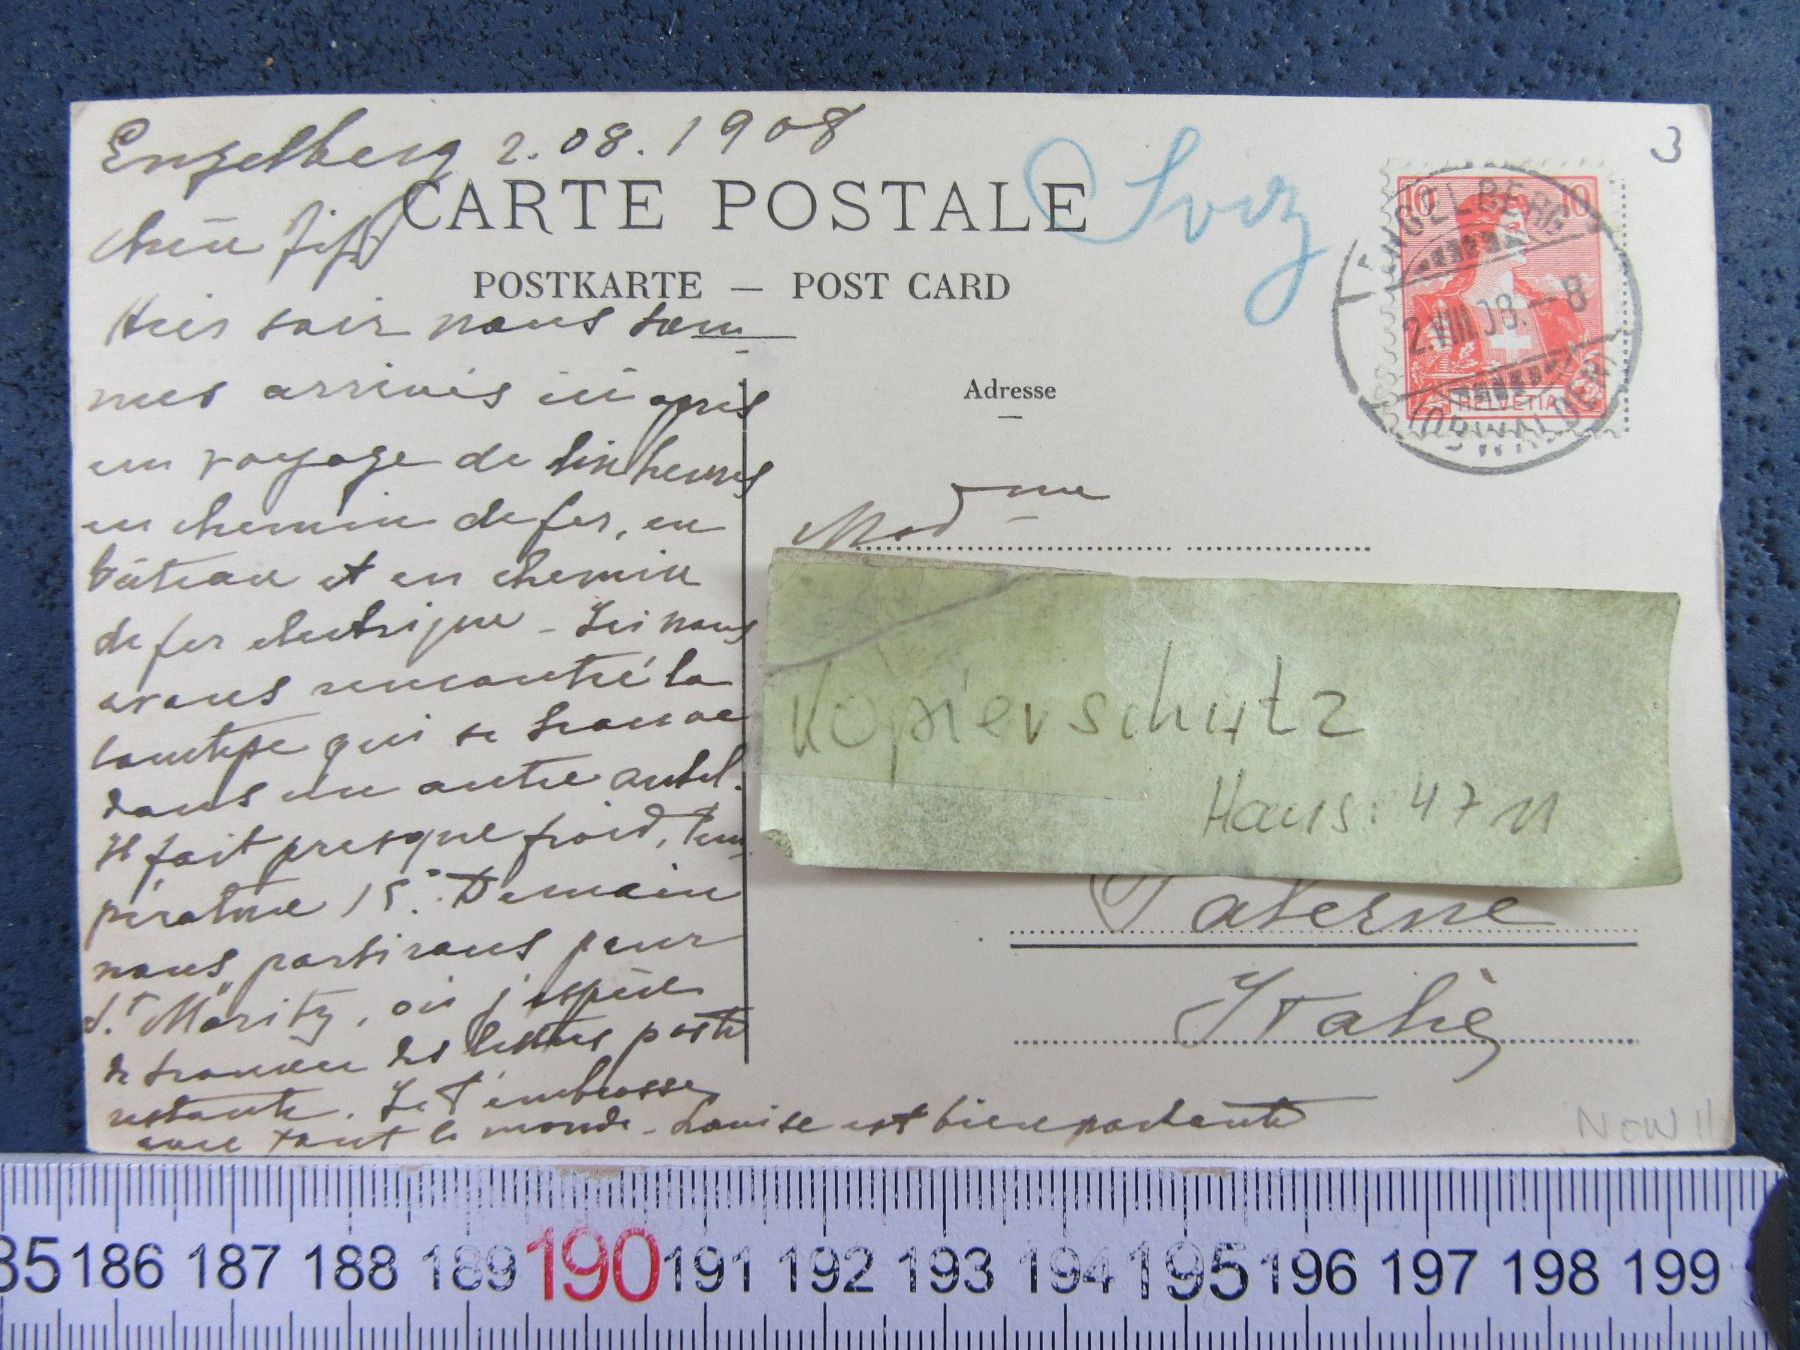 Engelberg 2.08.1908
CARTE POSTALE
Sviz
3
Chère Fifi
POSTKARTE — POST CARD
Hier soir nous som
mes arrivés ici après
un voyage de six heures
en chemin de fer, en
bâteau et en chemin
de fer electrique - Ici nous
avons rencontré la
qui se trouve
dans un autre
Il fait presque froid, tem
pérature 15°. Demain
nous partirons pour
St Moritz, où j'espère
de trouver des lettres poste
restante. Je t'embrasse
avec tout le monde - Louise est bien portante
Adresse
Mad me
Kopierschutz
Haus: 47 11
Palerne
Italie
10 10
HELVETIA
ENGELBERG
2.VIII.08.-8
(OBWALDEN)
NOW
35 186 187 188 189 190 191 192 193 194 195 196 197 198 199